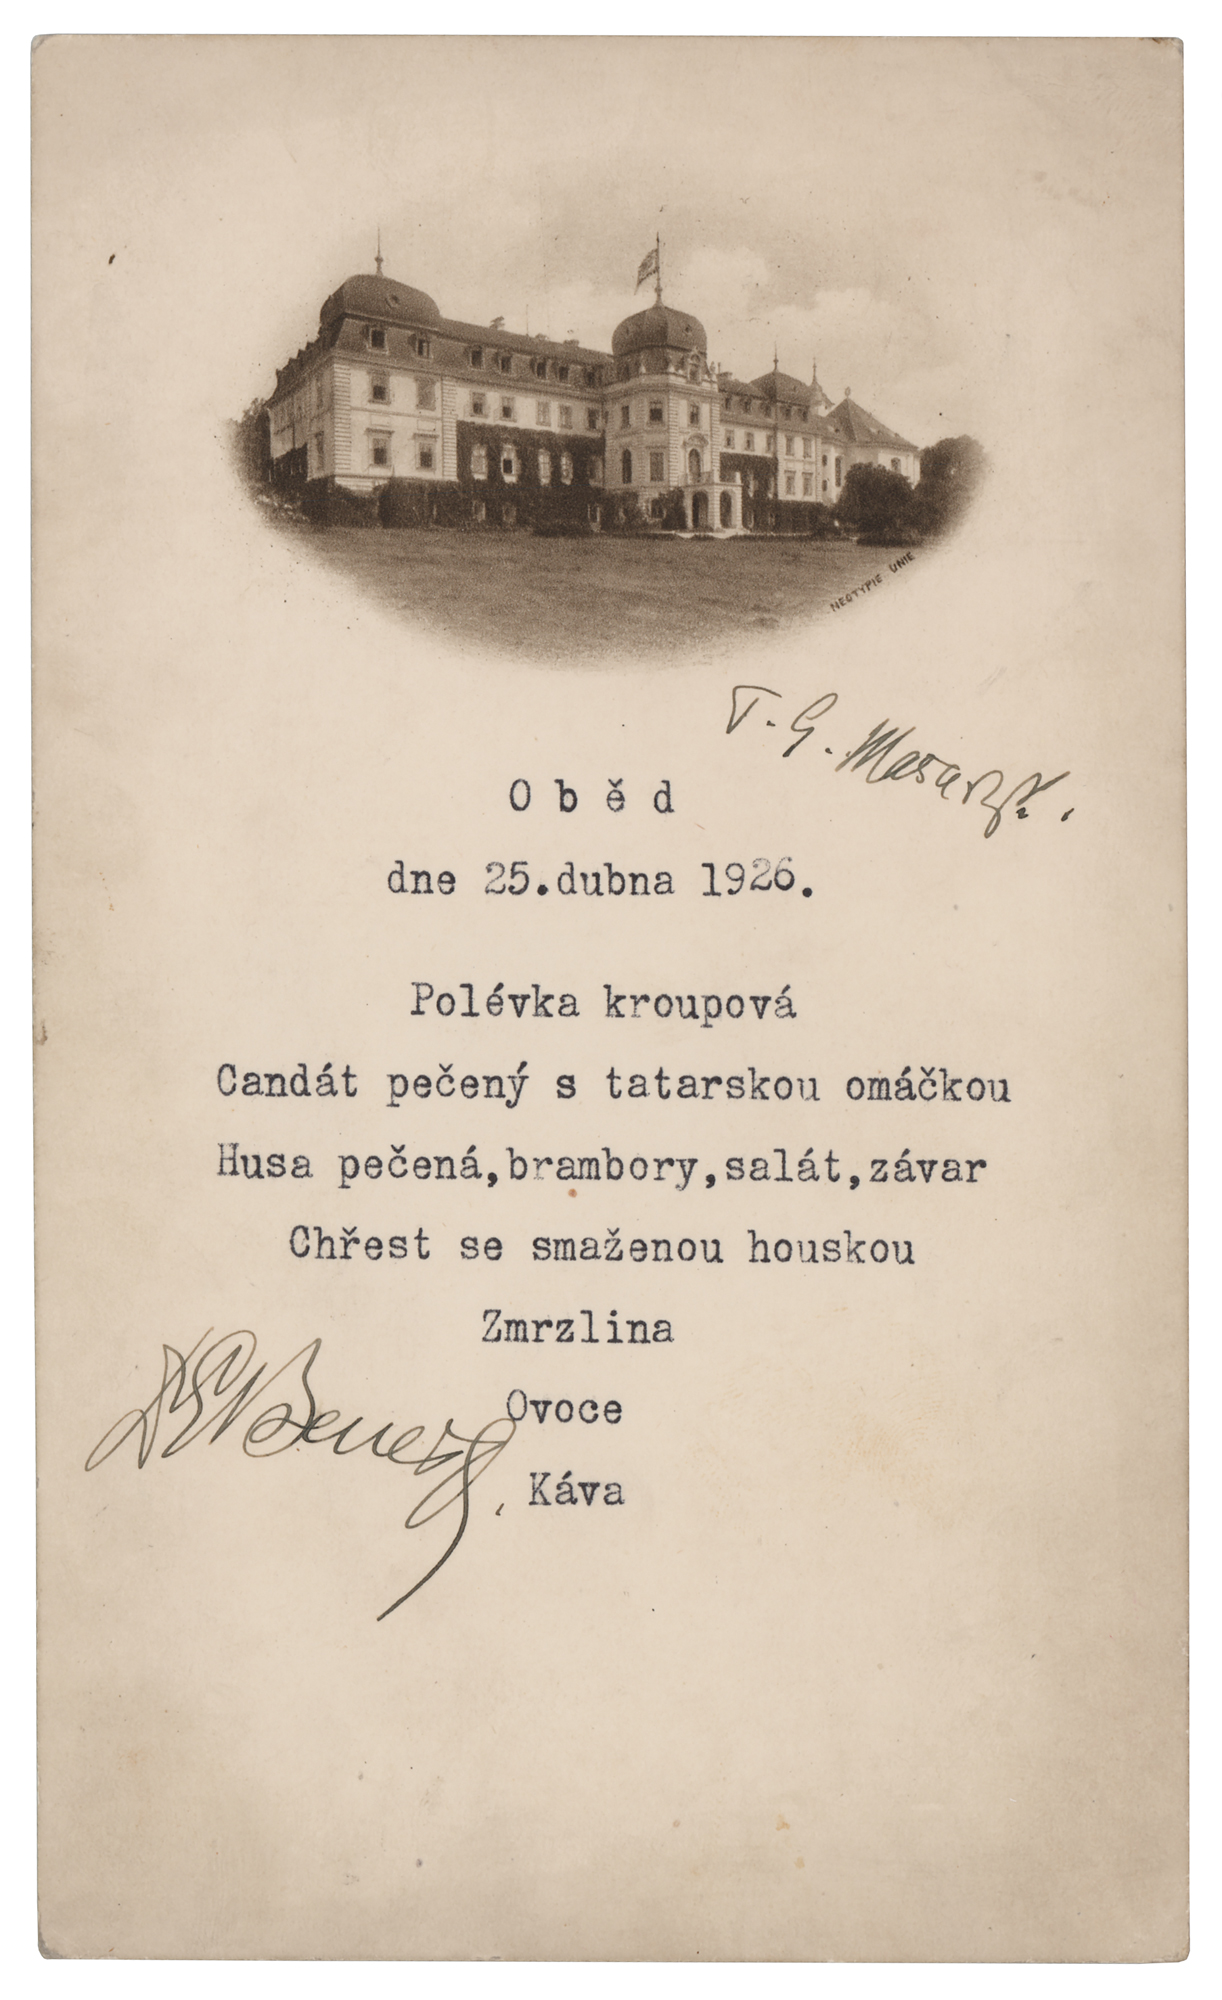 NEOTYPIE UNIE
T. G. Masaryk.
Oběd
dne 25.dubna 1926.
Polévka kroupová
Candát pečený s tatarskou omáčkou
Husa pečená,brambory,salát,závar
Chřest se smaženou houskou
Zmrzlina
Ovoce
Káva
Dr E Beneš.